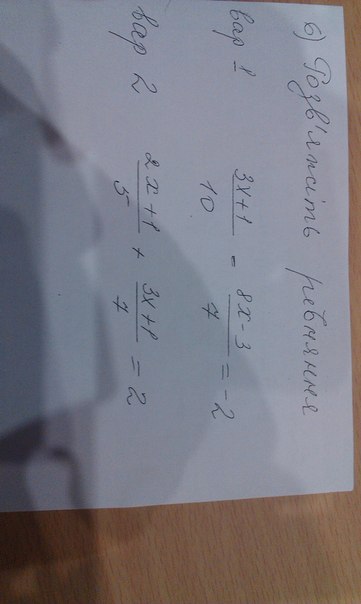 6) Розв'яжіть рівняння
вар 1 (3x+1)/10 = (8x-3)/7 = -2
вар 2 (2x+1)/5 + (3x+1)/7 = 2